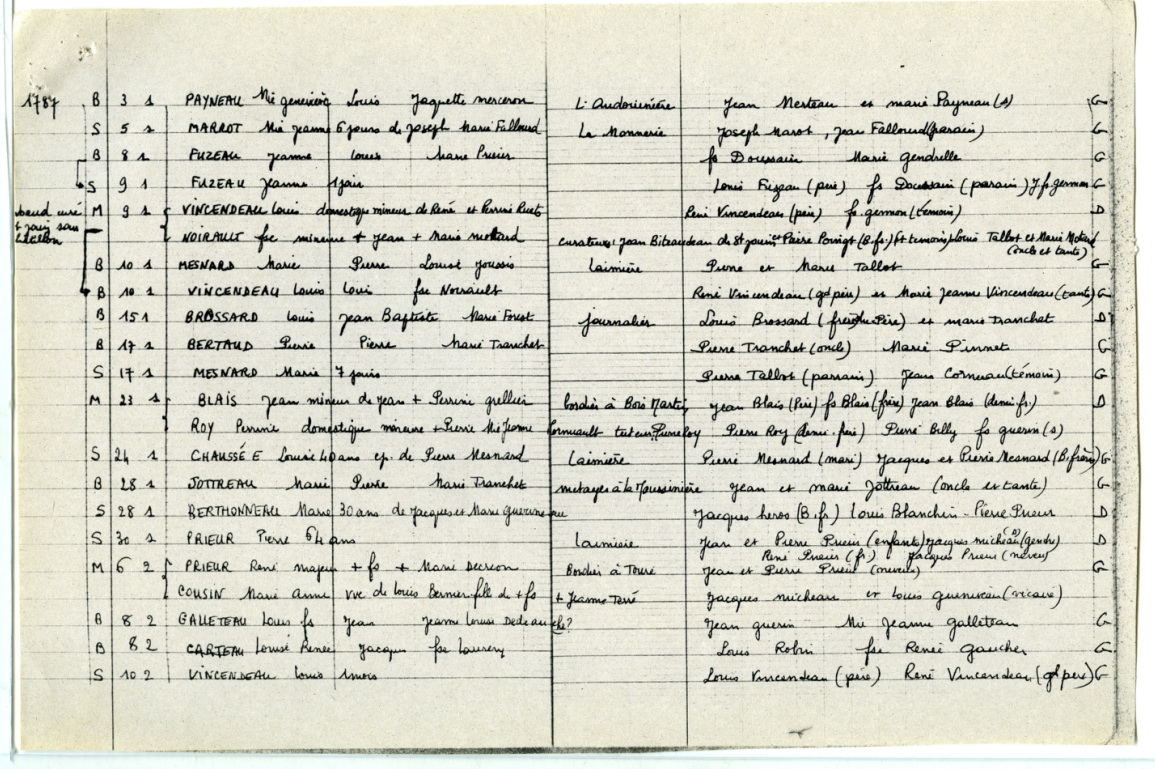 1787 B 3 1 PAYNEAU Mie geneviève Louis Jaquette merceron L'Audouinière Jean Merteau et marie Payneau (s) G
S 5 1 MARROT Mie jeanne 6 jours de joseph Marie Falloud La Monnerie Joseph Marot, Jean Falloud (parain) G
B 8 1 FUZEAU jeanne louis Marie Prieur fs Doussain Marie gendrelle G
S 9 1 FUZEAU jeanne 1 jour Louis Fuzeau (père) fs Doussain (parain) J. fs germon G
M 9 1 VINCENDEAU Louis domestique mineur de René et Perrine René Vincendeau (père) fs. germon (témoin) D
NOIRAULT fse mineure + jean + Marie motard curateurs: Jean Biteaudeau de St jouin et Pierre Poringt (B.fs.) (et temoin) Louis Tallot et Marie Motard (oncle et tante)
B 10 1 MESNARD Marie Pierre Louise joussis Laimière Pierre et Marie Tallot G
B 10 1 VINCENDEAU Louis Louis fse Noirault René Vincendeau (gd père) et Marie Jeanne Vincendeau (tante) G
B 15 1 BROSSARD Louis jean Baptiste Marie Forest journalier Louis Brossard (frère du Père) et marie Tranchet D
B 17 1 BERTAUD Pierre Pierre Marie Tranchet Pierre Tranchet (oncle) Marie Pinnet G
S 17 1 MESNARD Marie 7 jours Pierre Tallot (parrain) Jean Corneau (témoin) G
M 23 1 BLAIS jean mineur de jean + Perrine grellier bordier à Bois Martin jean Blais (Père) fs Blais (frère) Jean Blais (demi. fr.) D
ROY Perrine domestique mineure + Pierre Mie Jeanne Cornuault tuteur Pierre roy Pierre Roy (demi. frère) Pierre Billy fs guerin (s)
S 24 1 CHAUSSÉE Louise 40 ans ep. de Pierre Mesnard Laimière Pierre Mesnard (mari) Jacques et Pierre Mesnard (B. frères) G
B 28 1 JOTTREAU Marie Pierre Marie Tranchet metayer à la Joussinière jean et marie Jottreau (oncle et tante) G
S 28 1 BERTHONNEAU Marie 30 ans de Jacques et Marie Jacques heros (B.fs) Louis Blanchin - Pierre Prieur D
S 30 1 PRIEUR Pierre 64 ans Laimiere Jean et Pierre Prieur (enfants) Jacques micheau (gendre) D
René Prieur (fr.) Jacques Prieur (neveu)
M 6 2 PRIEUR René majeur + fs + Marie Decreon Bordier à Touré Jean et Pierre Prieur (neveux) G
COUSIN Marie anne vve de louis Bernier fille de + fs + Jeanne Terré Jacques micheau et Louis (vicaire)
B 8 2 GALLETEAU Louis fs Jean jeanne louise Dedeauche? Jean guerin Mie Jeanne galleteau G
B 8 2 CARTEAU Louise Renée Jacques fse Laurenz Louis Robin fse Renée gaucher G
S 10 2 VINCENDEAU louis 1 mois Louis Vincendeau (père) René Vincendeau (gd père) G